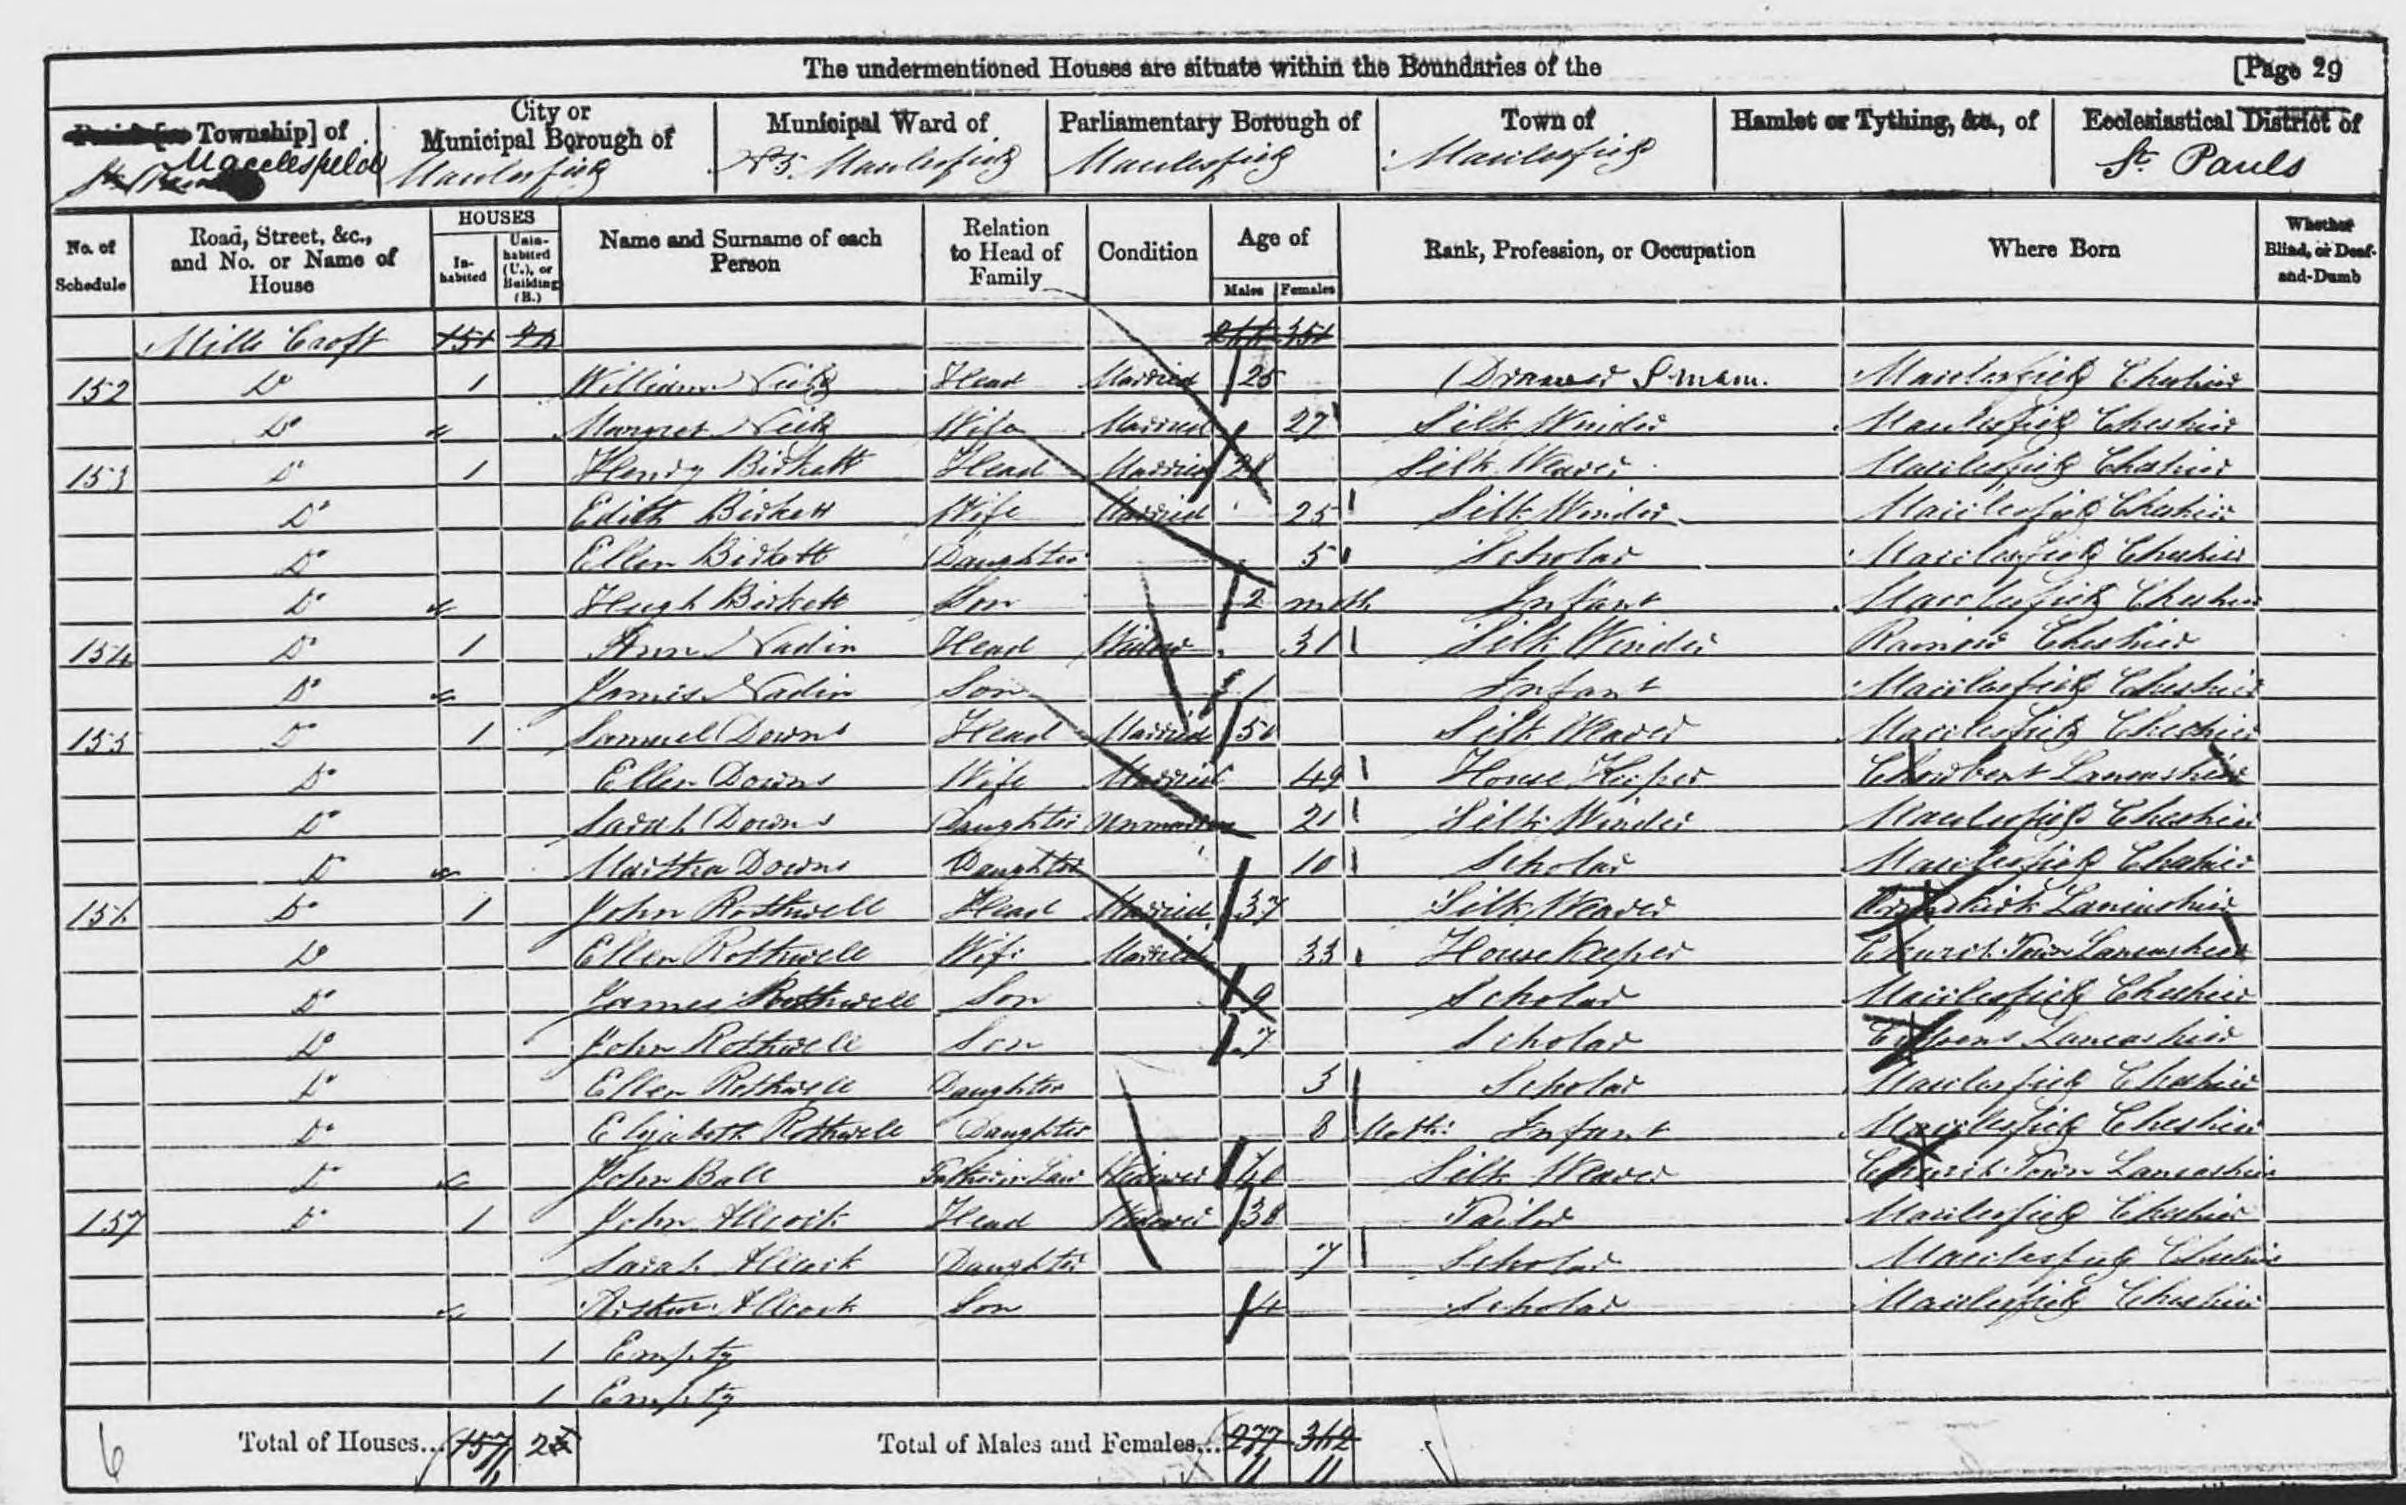 The undermentioned Houses are situate within the Boundaries of the [Page 29
Township] of Macclesfield
City or Municipal Borough of Macclesfield
Municipal Ward of No 5 Macclesfield
Parliamentary Borough of Macclesfield
Town of Macclesfield
Hamlet or Tything, &c., of
Ecclesiastical District of St Pauls
No. of Schedule
Road, Street, &c., and No. or Name of House
HOUSES
In-habited
Unin-habited (U.), or Building (B.)
Name and Surname of each Person
Relation to Head of Family
Condition
Age of
Males Females
Rank, Profession, or Occupation
Where Born
Whether Blind, or Deaf-and-Dumb
Mill Croft 151 351
152 Do 1 William Head Married 25 Macclesfield Cheshire
Do Margret Wife Married 27 Silk Winder Macclesfield Cheshire
153 Do 1 Henry Birkett Head Married 28 Silk Weaver Macclesfield Cheshire
Do Edith Birkett Wife Married 25 Silk Winder Macclesfield Cheshire
Do Ellen Birkett Daughter 5 Scholar Macclesfield Cheshire
Do Hugh Birkett Son 2 moth Infant Macclesfield Cheshire
154 Do 1 Ann Nadin Head Widow 31 Silk Winder Rainow Cheshire
Do James Nadin Son 1 Infant Macclesfield Cheshire
155 Do 1 Samuel Downs Head Married Silk Weaver Macclesfield Cheshire
Do Ellen Downs Wife Married 49 House Keeper Chowbent Lancashire
Do Sarah Downs Daughter Unmarried 21 Silk Winder Macclesfield Cheshire
Do Martha Downs Daughter 10 Scholar Macclesfield Cheshire
156 Do 1 John Rothwell Head Married 37 Silk Weaver Ormskirk Lancashire
Do Ellen Rothwell Wife Married 33 Housekeeper Church Town Lancashire
Do James Rothwell Son 9 Scholar Macclesfield Cheshire
Do John Rothwell Son 7 Scholar Lancashire
Do Ellen Rothwell Daughter 3 Scholar Macclesfield Cheshire
Do Elizabeth Rothwell Daughter 8 Moth: Infant Macclesfield Cheshire
Do John Ball Father in Law Widower Silk Weaver Church Town Lancashire
157 Do 1 John Allcock Head Widower 38 Tailor Macclesfield Cheshire
Sarah Allcock Daughter 7 Scholar Macclesfield Cheshire
Arthur Allcock Son 4 Scholar Macclesfield Cheshire
1 Empty
1 Empty
6 Total of Houses... 157 Total of Males and Females... 277 362
11 11